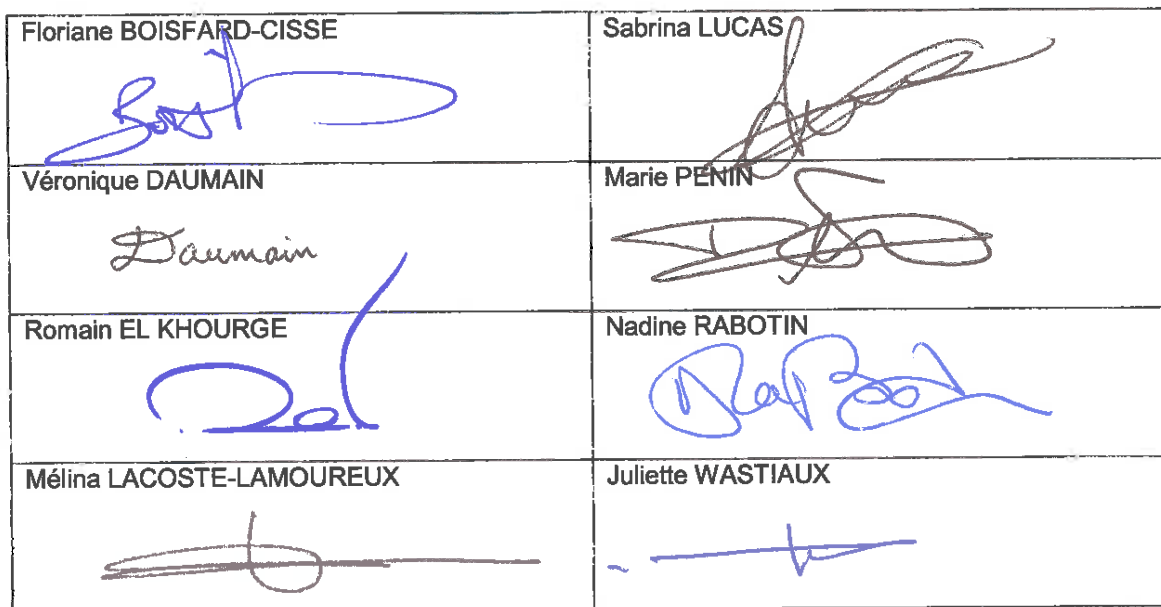 Floriane BOISFARD-CISSE
Sabrina LUCAS
Véronique DAUMAIN
Daumain
Marie PENIN
Romain EL KHOURGE
Nadine RABOTIN
Mélina LACOSTE-LAMOUREUX
Juliette WASTIAUX